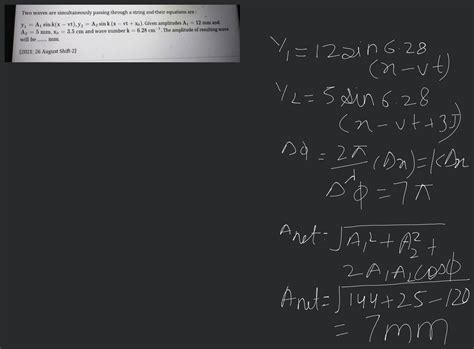 Two waves are simultaneously passing through a string and their equations are :
y₁ = A₁ sin k(x − vt), y₂ = A₂ sin k (x − vt + x₀). Given amplitudes A₁ = 12 mm and
A₂ = 5 mm, x₀ = 3.5 cm and wave number k = 6.28 cm⁻¹. The amplitude of resulting wave
will be ....... mm.
[2021: 26 August Shift-2]
Y₁ = 12 sin 6.28
(x − vt)
Y₂ = 5 sin 6.28
(x − vt + 3.5)
Δφ = 2π/λ (Δx) = kΔx
Δφ = 7π
Anet = √A₁² + A₂² +
2A₁A₂cosφ
Anet = √144 + 25 − 120
= 7mm